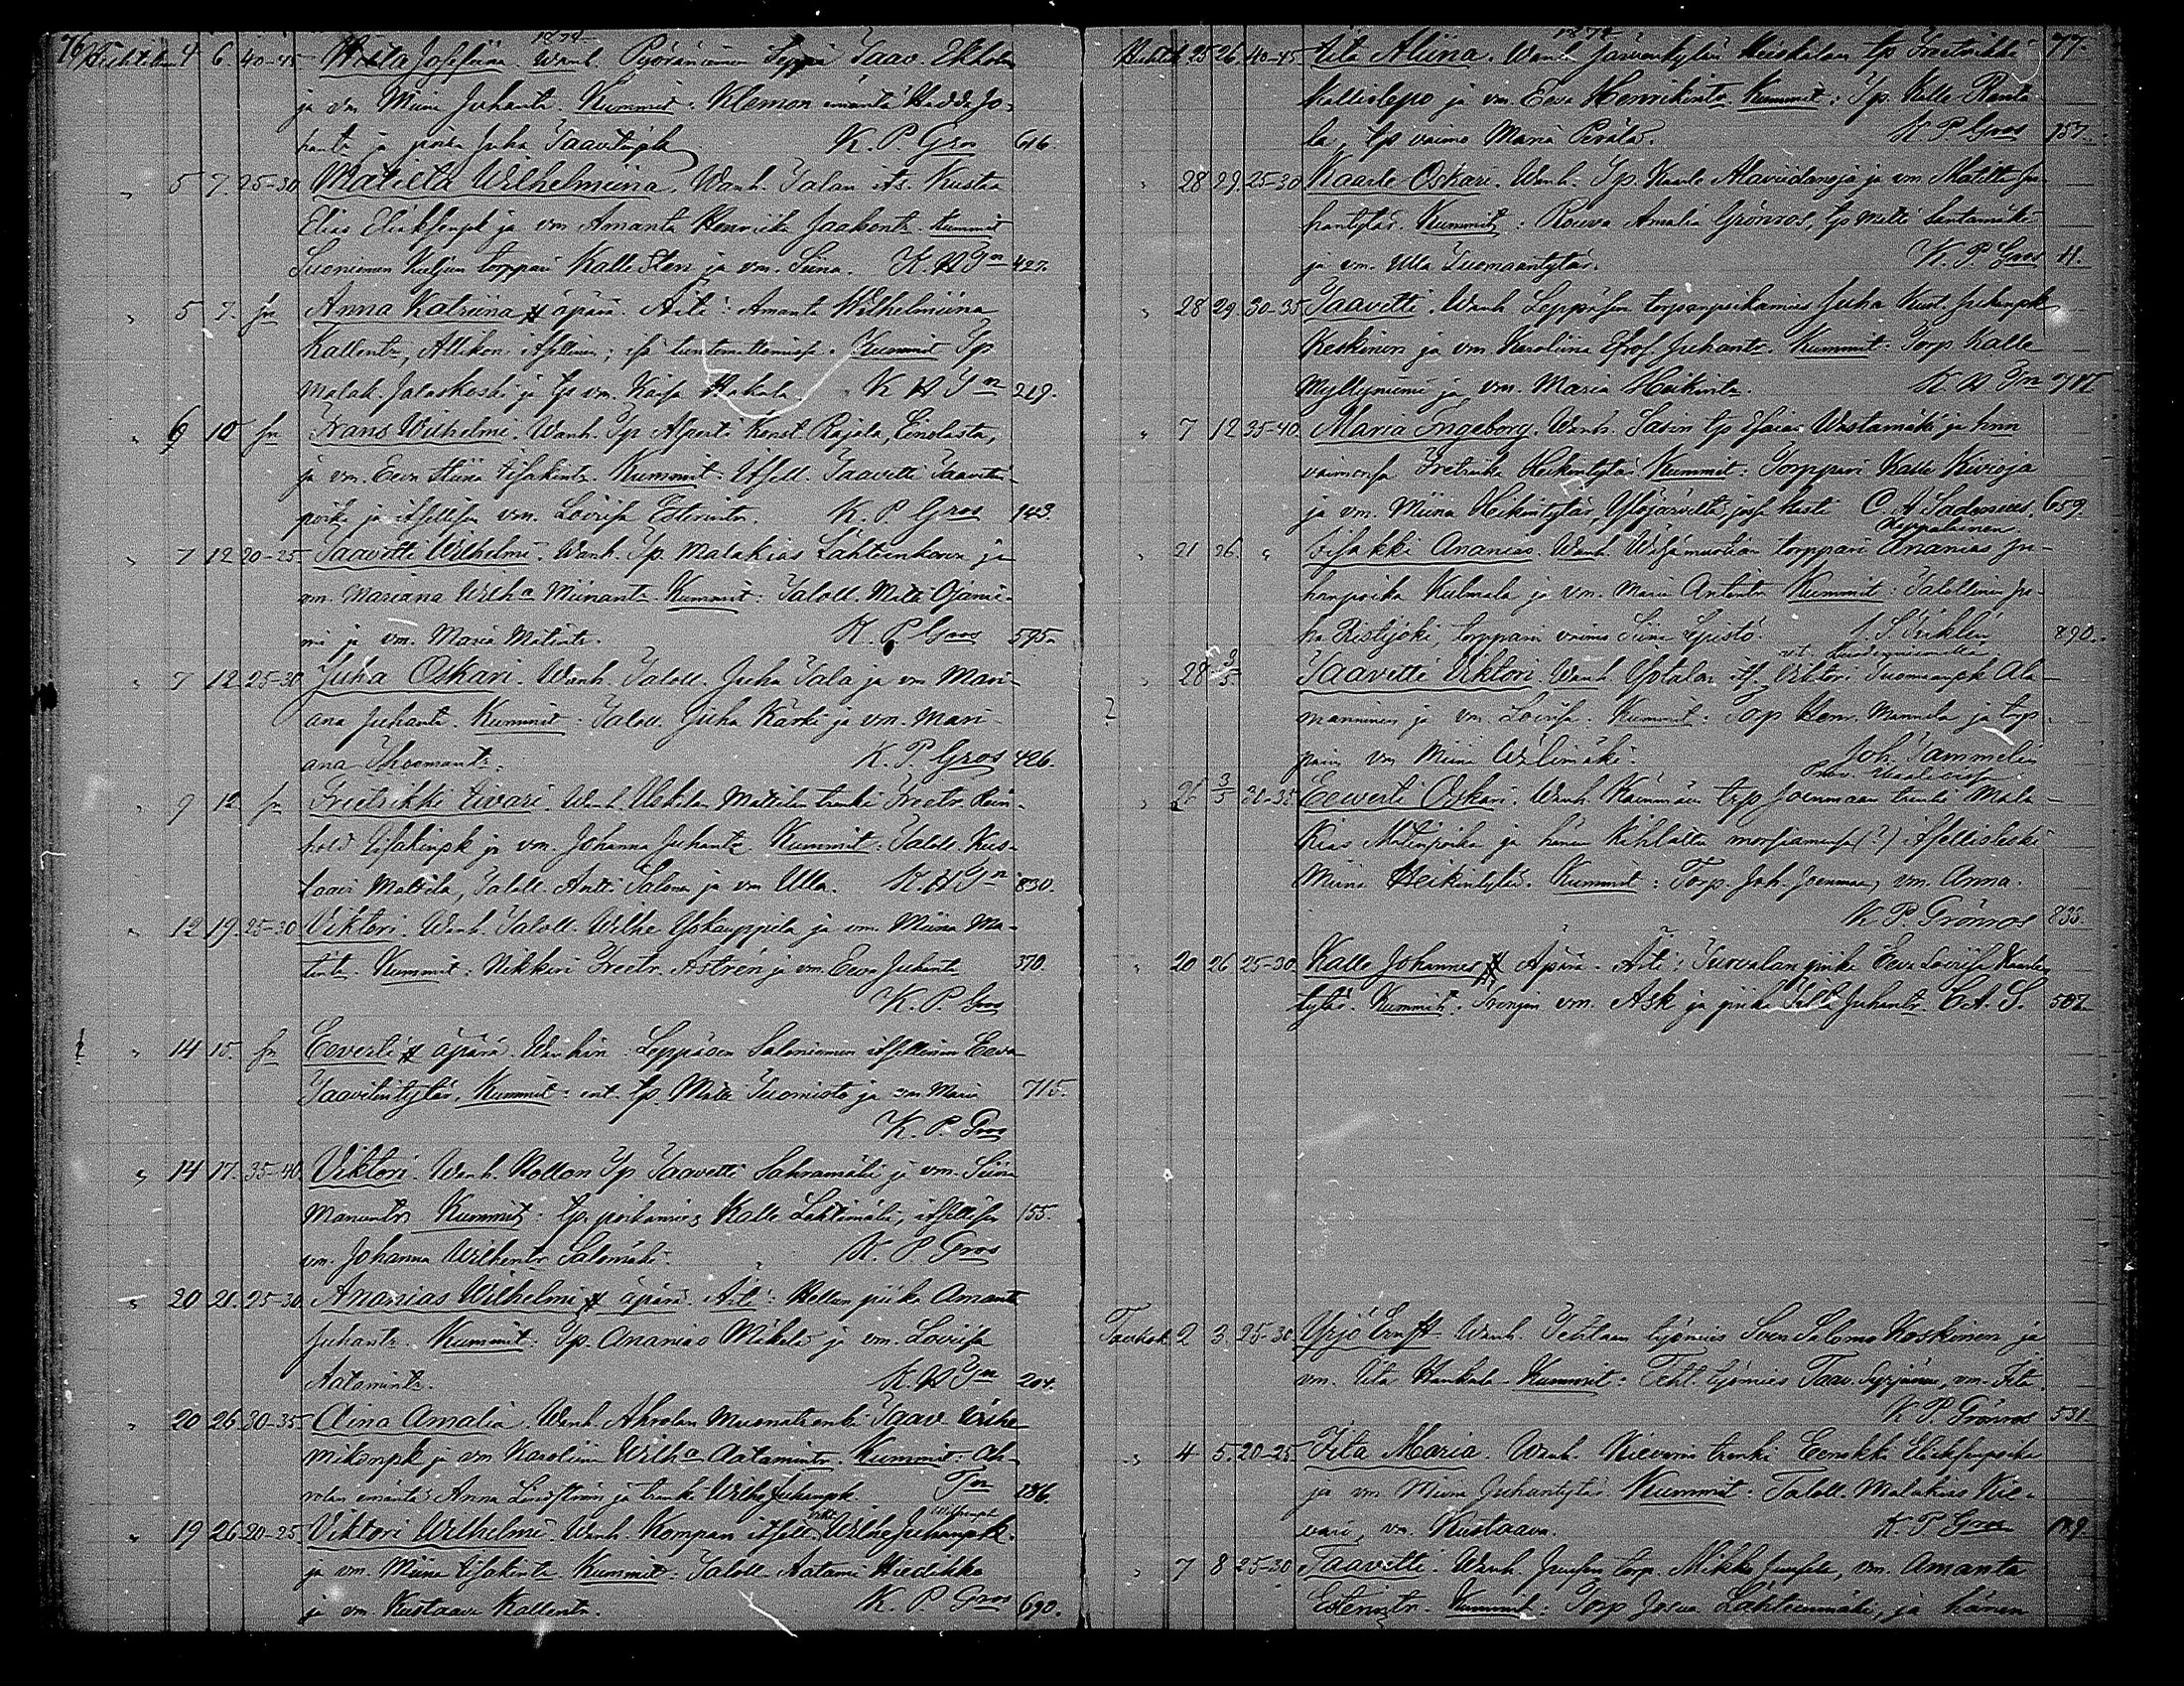 76. 1872
Huhtik. 4 6. 40-45 Josefiina. Wanh. Pyöräniemen Seppä Taav. Ekholm
ja vm Miina Juhantr. Kummit: Klemon emäntä Hedda Jo-
hantr ja poika Juha Taavetinpk K. P. Gros 616.
" 5 7. 25-30 Matilta Wilhelmiina. Wanh. Talan its. Kustaa
Elias Eliksenpk ja vm Amanta Henriika Jaakontr. Kummit
Suoniemen Kuljun torppari Kalle Sten ja vm. Siina. 427.
" 5 7. sn Anna Katriina äpärä. Äiti: Amanta Wilhelmiina
Kallentr, itsellinen; isä tuntematoin. Kummit Tp
Malak. Jalaskoski ja tp vm. Kaisa Hakala. 219.
" 6 10 sn Frans Wilhelmi. Wanh. Tp Alpert Konst. Rajala, Einolasta,
ja vm. Eeva Stiina Iisakintr. Kummit: Itsell. Taavetti Taavetin-
poika ja itsellisen vm. Lovisa Esterintr. K. P. Gros 143.
" 7 12 20-25 Taavetti Wilhelmi. Wanh. Tp. Malakias Lähteenkorva ja
vm. Mariana Wilha Miinantr Kummit: Taloll. Matti Ojanie-
mi ja vm. Maria Matintr. K. P. Gros 595.
" 7 12 25-30 Juha Oskari. Wanh. Taloll. Juha Tala ja vm Mari-
ana Juhantr. Kummit: Taloll. Juha Kärki ja vm. Mari-
ana Thoomantr. K. P. Gros 426.
" 9 12 sn Freetrikki Iivari. Wanh. Uskilan Mattilan trenki Freetr. Rein-
hold Iisakinpk ja vm. Johanna Juhantr Kummit: Taloll. Kus-
taavi Mattila, Taloll. Antti Talona ja vm Ulla. 830.
" 12 19 25-30 Viktori. Wanh. Taloll. Wilhe Yskauppila ja vm. Miina Ma-
tintr. Kummit: Nikkari Freetr. Astrén ja vm. Eeva Juhantr 370.
K. P. Gros
" 14 15. sn Eeverti äpärä. Wanhin: Leppäsen Saloniemen itsellinen Eeva
Taavetintytär. Kummit: ent. tp. Matti Tuomisto ja vm Maria 715.
K. P. Gros
" 14 17. 35-40 Viktori. Wanh. Rollon Tp Taavetti Sahramäki ja vm. Siina
Manuntr. Kummit: tp. poikamies Kalle Lahtimäki, itsellisen 155.
vm. Johanna Wilhentr Salomäki. K. P. Gros
" 20 21. 25-30 Ananias Wilhelmi äpärä. Äiti: Hellun piika Amanta
Juhantr. Kummit: Tp. Ananias Mäkelä ja vm. Lovisa
Aatamintr. 204.
" 20 26 30-35 Aina Amalia. Wanh. Ahrolan Muonatrenki Taav. Wilhe-
mikonpk ja vm Karoliina Wilha Aatamintr. Kummit: Ah-
rolan emäntä Anna Lindström ja trenki Wilhe Juhanpk. 286.
" 19 26 20-25 Viktori Wilhelmi. Wanh. Kompan itsell. Wilhe Juhanpk.
ja vm. Miina Iisakintr. Kummit: Taloll. Aatami Hiedikko
ja vm. Kustaava Kallentr. K. P. Gros 690.
1872 77.
Huhtik. 25 26. 40-45 Iita Aliina. Wanh Järvenkylän Heiskalan tp Freetrikki
Kalliolepo ja vm. Eeva Henrikintr. Kummit: Tp. Kalle Ranta-
la, tp vaimo Maria Perälä. K. P. Gros 757.
" 28 29. 25-30 Kaarle Oskari. Wanh. Tp. Kaarle Alaviidanoja ja vm Matilta Ju-
hantytär. Kummit: Rouva Amalia Grönros, tp Matti Santamäki
ja vm. Ulla Tuomaantytär. K. P. Gros 11.
" 28 29 30-35 Taavetti. Wanh Leppäsen torpanpoikamies Juha Kust. Juhanpk
Keskinen ja vm. Karoliina Juhantr. Kummit: Torp. Kalle
Myllyniemi ja vm. Maria Heikintr. 717
" 7 12 35-40 Maria Ingeborg. Wanh. Sasin tp Esaias Wästämäki ja hnn
vaimonsa Freetriika Heikintytär Kummit: Torppari Kalle Kivioja
ja vm. Miina Heikintytär, Ylöjärveltä, josa kasti C. A. Sadenius. 659
Kappalainen
" 21 26. " Iisakki Ananias. Wanh. torppari Ananias Ju-
hanpoika Kulmala ja vm. Maria Antintr Kummit: Talollinen Ju-
ha Ristijoki, torpparin vaimo Siina Lepistö. 890.
" 28 9/5. Taavetti Viktori. Wanh. its. Viktori Tuomaanpk Ala-
manninen ja vm. Lovisa. Kummit: Torp Henr. Mannila ja torp-
parin vm Miina Wälimäki. Joh. Tammelin
" 26 3/5 30-35 Eewerti Oskari. Wanh. Kaimmäen torp Joenmaan trenki Mala-
kias Matinpoika ja hänen kihlattu morsiamensa (?) itsellisleski
Miina Heikintytär. Kummit: Torp. Joh. Joenmaa, vm. Anna.
K. P. Grönros 835.
" 20 26 25-30 Kalle Johannes Äpärä. Äiti: Turvalan piika Eeva Lovisa Kaarlen-
tytär. Kummit: vm. Ask ja piika Juhantr. C. A. S. 507.
Toukok. 2 3. 25-30 Yrjö Ernst Wanh. Tehtaan työmies Sven Salomo Koskinen ja
vm. Iita Hankala Kummit: Teht. työmies Taav. Syrjänen, vm. Iita.
K. P. Grönros 531.
" 4 5. 20-25 Iita Maria. Wanh. Kievarin trenki Eenokki Eliksenpoika
ja vm Miina Juhantytär. Kummit: Taloll. Malakias Kie-
vari, vm. Kustaava. K. P. Gros
" 7 8 25-30 Taavetti. Wanh. torp. Mikko vm. Amanta
Esterintr. Kummit: Torp Josua Lähteenmäki, ja hänen